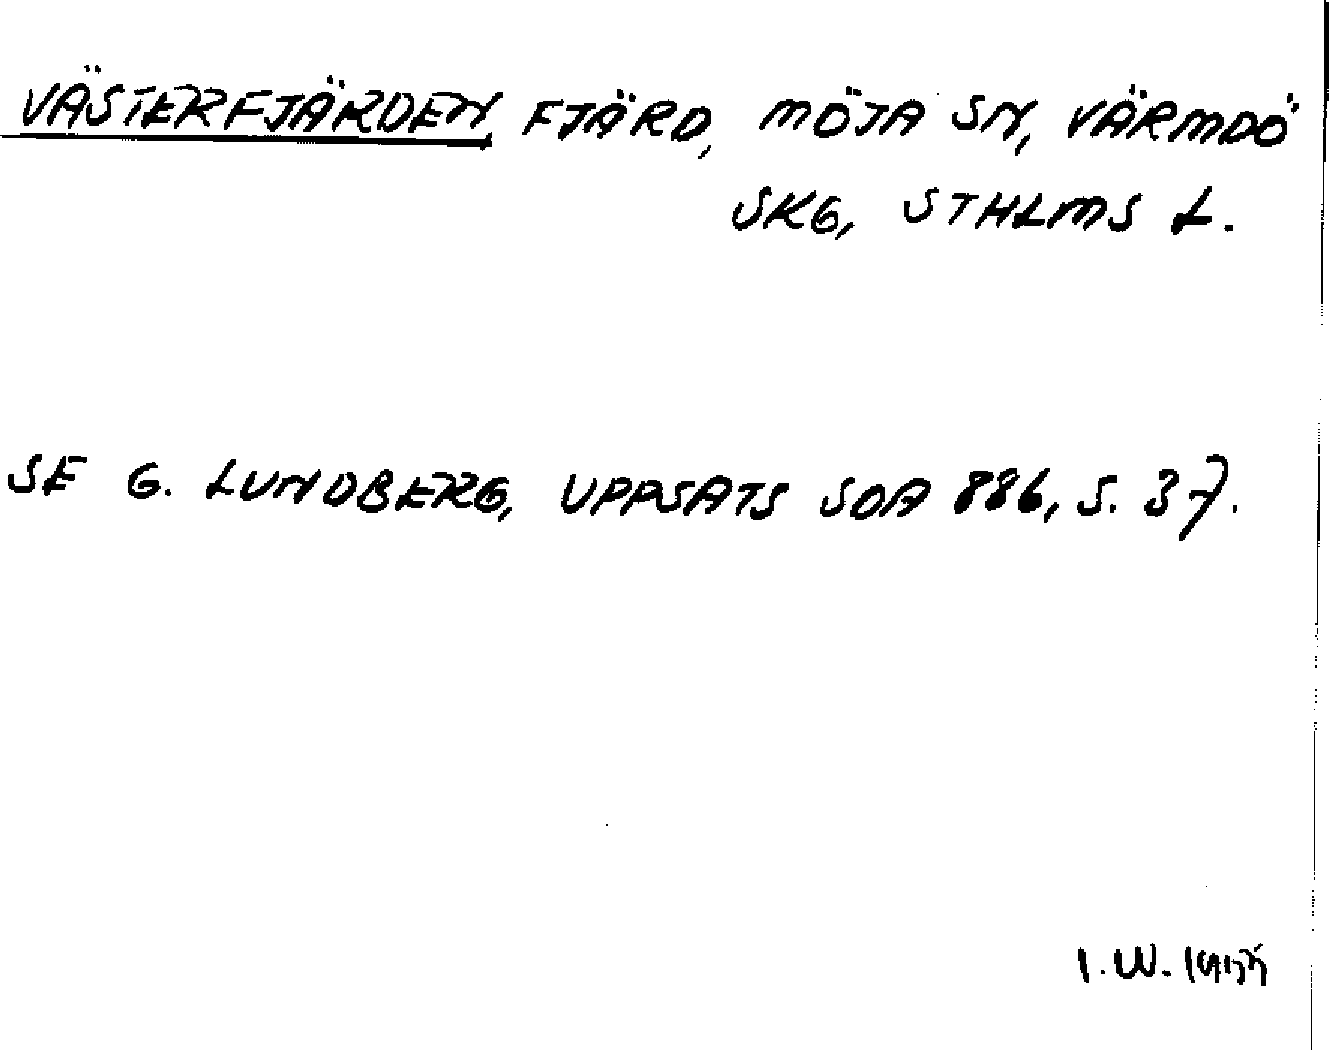 VÄSTERFJÄRDEN, FJÄRD, MÖJA SN, VÄRMDÖ
SKG, STHLMS L.
SE G. LUNDBERG, UPPSATS SOA 886, S. 37.
I.W.